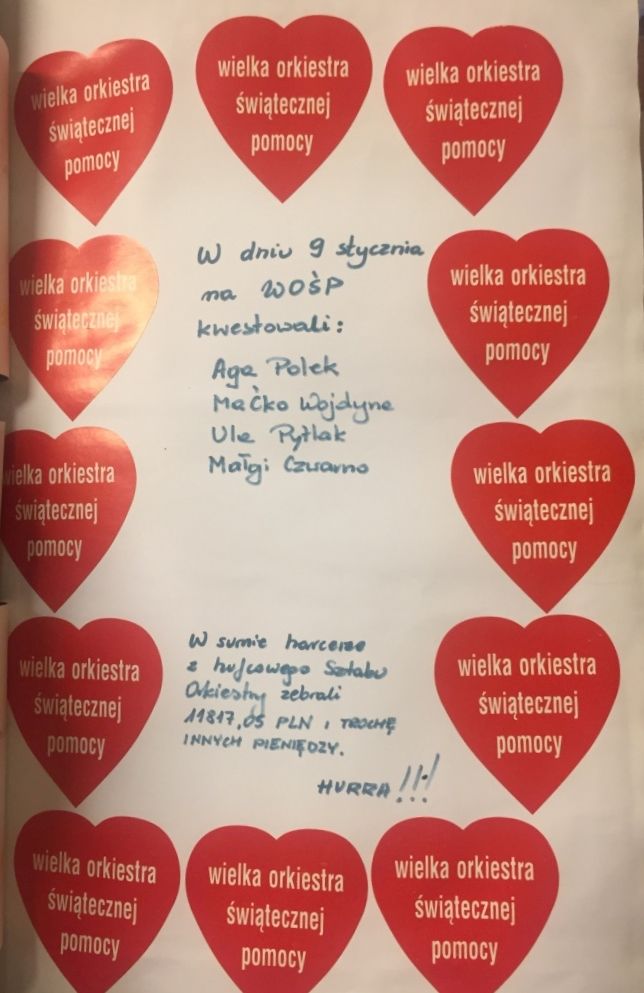 wielka orkiestra
świątecznej
pomocy
wielka orkiestra
świątecznej
pomocy
wielka orkiestra
świątecznej
pomocy
wielka orkiestra
świątecznej
pomocy
W dniu 9 stycznia
na WOŚP
kwestowali:
Aga Polek
Maćko Wojdyne
Ula Pytlak
Małgi Czwarno
wielka orkiestra
świątecznej
pomocy
wielka orkiestra
świątecznej
pomocy
wielka orkiestra
świątecznej
pomocy
wielka orkiestra
świątecznej
pomocy
W sumie harcerze
z hufcowego Sztabu
Orkiestry zebrali
11817,05 PLN i TROCHĘ
INNYCH PIENIĘDZY.
HURRA !!!
wielka orkiestra
świątecznej
pomocy
wielka orkiestra
świątecznej
pomocy
wielka orkiestra
świątecznej
pomocy
wielka orkiestra
świątecznej
pomocy